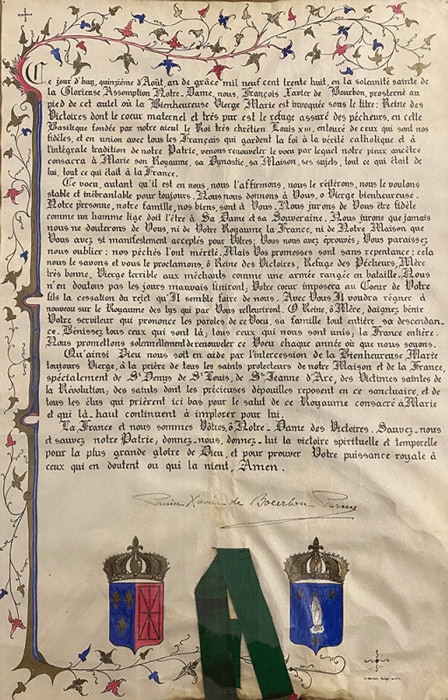 Ce jour d'huy, quinzième d'Août, an de grâce mil neuf cent trente huit, en la solennité sainte de
la Glorieuse Assomption Notre Dame, nous, François Xavier de Bourbon, prosterné au
pied de cet autel où la Bienheureuse Vierge Marie est invoquée sous le titre: Reine des
Victoires dont le cœur maternel et très pur est le refuge assuré des pécheurs, en cette
Basilique fondée par notre aïeul le Roi très chrétien Louis XIII, entouré de ceux qui sont nos
fidèles, et en union avec tous les Français qui gardent la foi à la vérité catholique et à
l'intégrale tradition de notre Patrie, venons renouveler le vœu par lequel notre pieux ancêtre
consacra à Marie son Royaume, sa Dynastie, sa Maison, ses sujets, tout ce qui était de
lui, tout ce qui était à la France.
Ce vœu, autant qu'il est en nous, nous l'affirmons, nous le réitérons, nous le voulons
stable et inébranlable pour toujours. Nous nous donnons à Vous, ô Vierge bienheureuse.
Notre personne, notre famille, nos biens, sont à Vous. Nous jurons de Vous être fidèle
comme un homme lige doit l'être à Sa Dame et sa Souveraine. Nous jurons que jamais
nous ne douterons de Vous, ni de Votre Royaume la France, ni de Notre Maison que
Vous avez si manifestement acceptés pour Vôtres; Vous nous avez éprouvés, Vous paraissez
nous oublier: nos péchés l'ont mérité. Mais Vos promesses sont sans repentance: cela
nous le savons et nous le proclamons, ô Reine des Victoires, Refuge des Pécheurs, Mère
très bonne, Vierge terrible aux méchants comme une armée rangée en bataille. Nous
n'en doutons pas les jours mauvais finiront; Votre cœur imposera au Cœur de Votre
fils la cessation du rejet qu'Il semble faire de nous. Avec Vous Il voudra régner à
nouveau sur le Royaume des lys qui par Vous refleuriront. O Reine, ô Mère, daignez bénir
Votre serviteur qui prononce les paroles de ce Vœu, sa famille tout entière sa descendan-
ce. Bénissez tous ceux qui sont là; tous ceux qui nous sont unis; la France entière.
Nous promettons solennellement de renouveler ce Vœu chaque année où que nous soyons.
Qu'ainsi Dieu nous soit en aide par l'intercession de la Bienheureuse Marie
toujours Vierge, à la prière de tous les saints protecteurs de notre Maison et de la France,
spécialement de St Denys de St Louis, de Ste Jeanne d'Arc, des Victimes saintes de
la Révolution, des saints dont les précieuses dépouilles reposent en ce sanctuaire, et de
tous les élus qui prièrent ici bas pour le salut de ce Royaume consacré à Marie
et qui là-haut continuent à implorer pour lui.
La France et nous sommes Vôtres, ô Notre-Dame des Victoires. Sauvez-nous
et sauvez notre Patrie, donnez-nous, donnez-lui la victoire spirituelle et temporelle
pour la plus grande gloire de Dieu, et pour prouver Votre puissance royale à
ceux qui en doutent ou qui la nient, Amen.
Xavier de Bourbon Parme